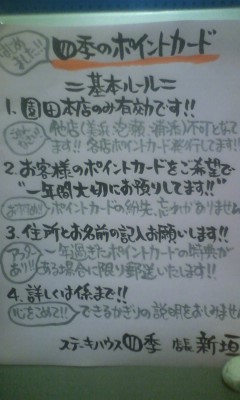 はじめました!!
四季のポイントカード
＝基本ルール＝
1. 園田本店のみ有効です!!
他店(美浜、泡瀬、浦添)不可となて
ます!! 各店ポイントカード発行してます!!
2. お客様のポイントカードをご希望で
"一年間大切にお預りしてます!!"
ポイントカードの紛失、忘れがありません
3. 住所とお名前の記入お願いします!!
アフター
あり!!
一年過ぎたポイントカードの特典が
ある場合に限り郵送いたします!!
4. 詳しくは係まで!!
心をこめて!!
できるかぎりの説明をおしみません
ステーキハウス四季 店長 新垣